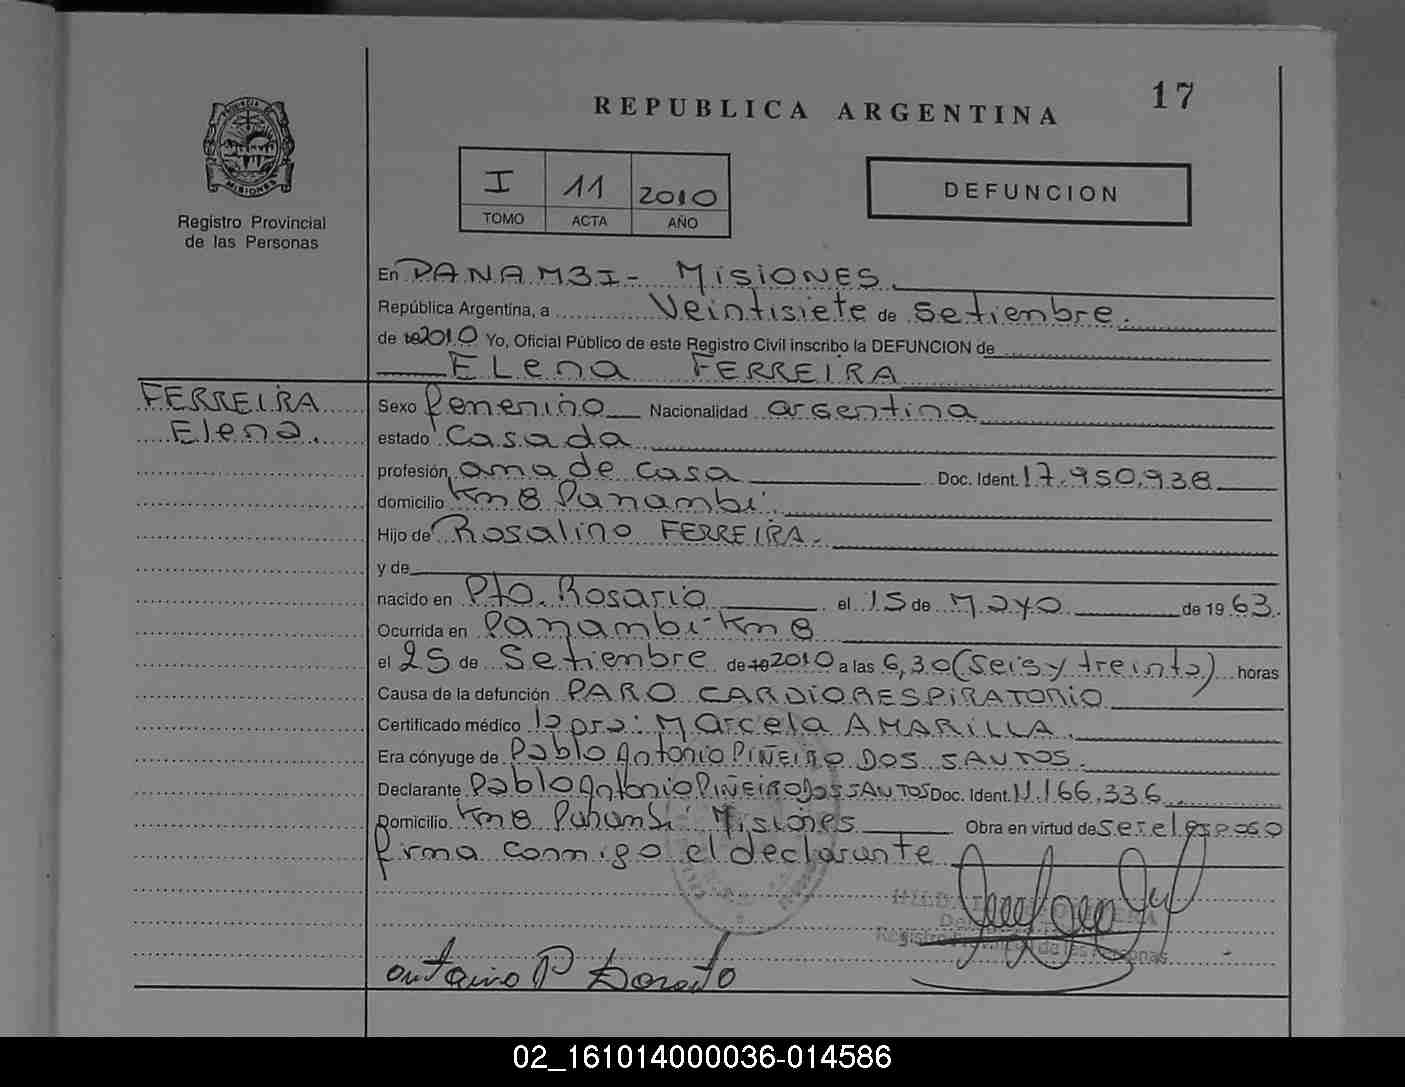 17
REPUBLICA ARGENTINA
PROVINCIA DE
MISIONES
Registro Provincial
de las Personas
I 11 2010
TOMO ACTA AÑO
DEFUNCION
En PANAMBI - MISIONES.
República Argentina, a Veintisiete de Setiembre.
de 19 2010 Yo, Oficial Público de este Registro Civil inscribo la DEFUNCION de
Elena FERREIRA
FERREIRA
Elena.
Sexo femenino Nacionalidad argentina
estado Casada
profesión ama de casa Doc. Ident. 17.950.938
domicilio Km 8 Panambi.
Hijo de Rosalino FERREIRA.
y de
nacido en Pto. Rosario el 15 de Mayo de 19 63.
Ocurrida en Panambi - Km 8
el 25 de Setiembre de 19 2010 a las 6,30 (seis y treinta) horas
Causa de la defunción PARO CARDIORESPIRATORIO
Certificado médico la Dra: Marcela AMARILLA.
Era cónyuge de Pablo Antonio PIÑEIRO DOS SANTOS.
Declarante Pablo Antonio PIÑEIRO DOS SANTOS Doc. Ident. 11.166.336
Domicilio Km 8 Panambi Misiones Obra en virtud de ser el esposo
firma conmigo el declarante
Registro de las Personas
02_161014000036-014586